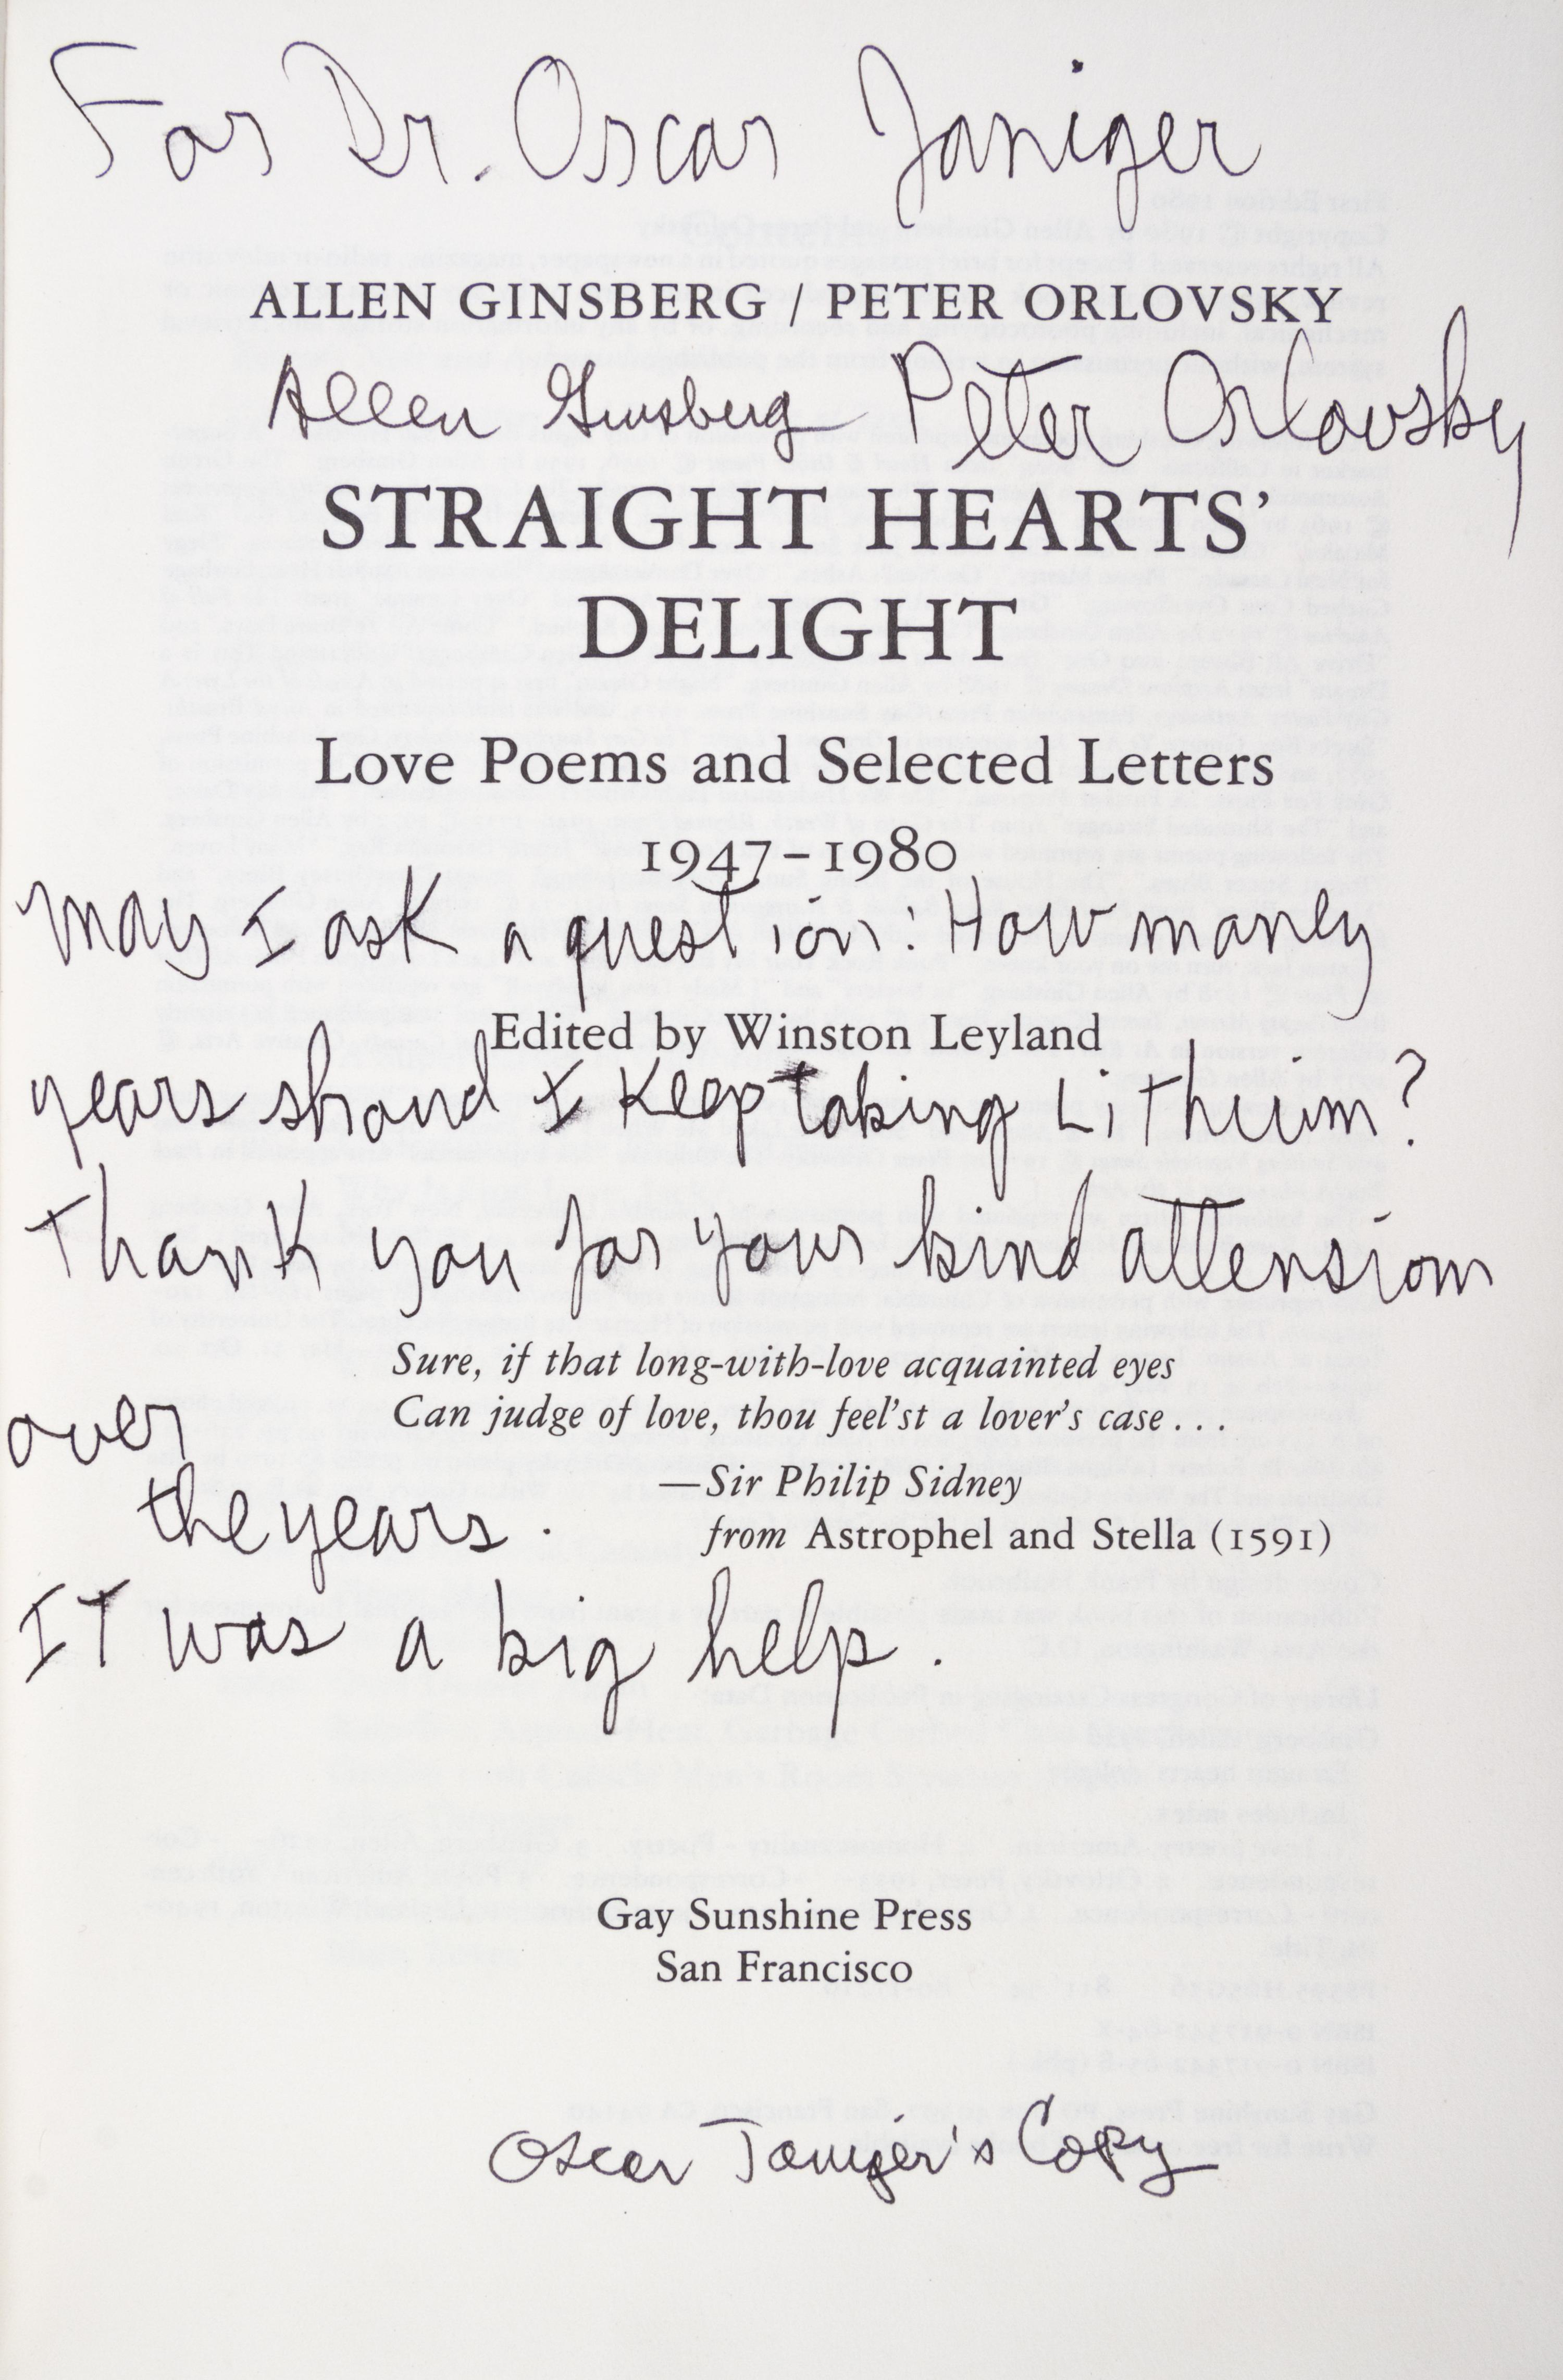 For Dr. Oscar Janiger
ALLEN GINSBERG / PETER ORLOVSKY
Allen Ginsberg Peter Orlovsky
STRAIGHT HEARTS'
DELIGHT
Love Poems and Selected Letters
1947–1980
may I ask a question: How maney
Edited by Winston Leyland
years shoud I Keep taking Lithium?
Thank you for your kind attension
Sure, if that long-with-love acquainted eyes
Can judge of love, thou feel'st a lover's case...
over
—Sir Philip Sidney
the years.
from Astrophel and Stella (1591)
IT was a big help.
Gay Sunshine Press
San Francisco
Oscar Janiger's Copy